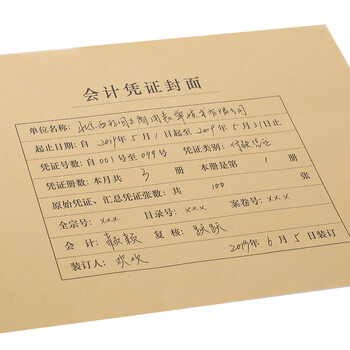 会计凭证封面
单位名称：北京西玛阅表单技术有限公司
起止日期：自 2019 年 5 月 1 日起至 2019 年 5 月 31 日止
凭证号数：自 001 号至 099 号 凭证类别：付款凭证
凭证册数：本月共 3 册 本册是第 1 册
原始凭证、汇总凭证张数：共 100 张
全宗号：xxx 目录号：xxx 案卷号：xxx
会 计：颖颖 复 核：跃跃
装订人：欢欢 2019 年 6 月 5 日装订